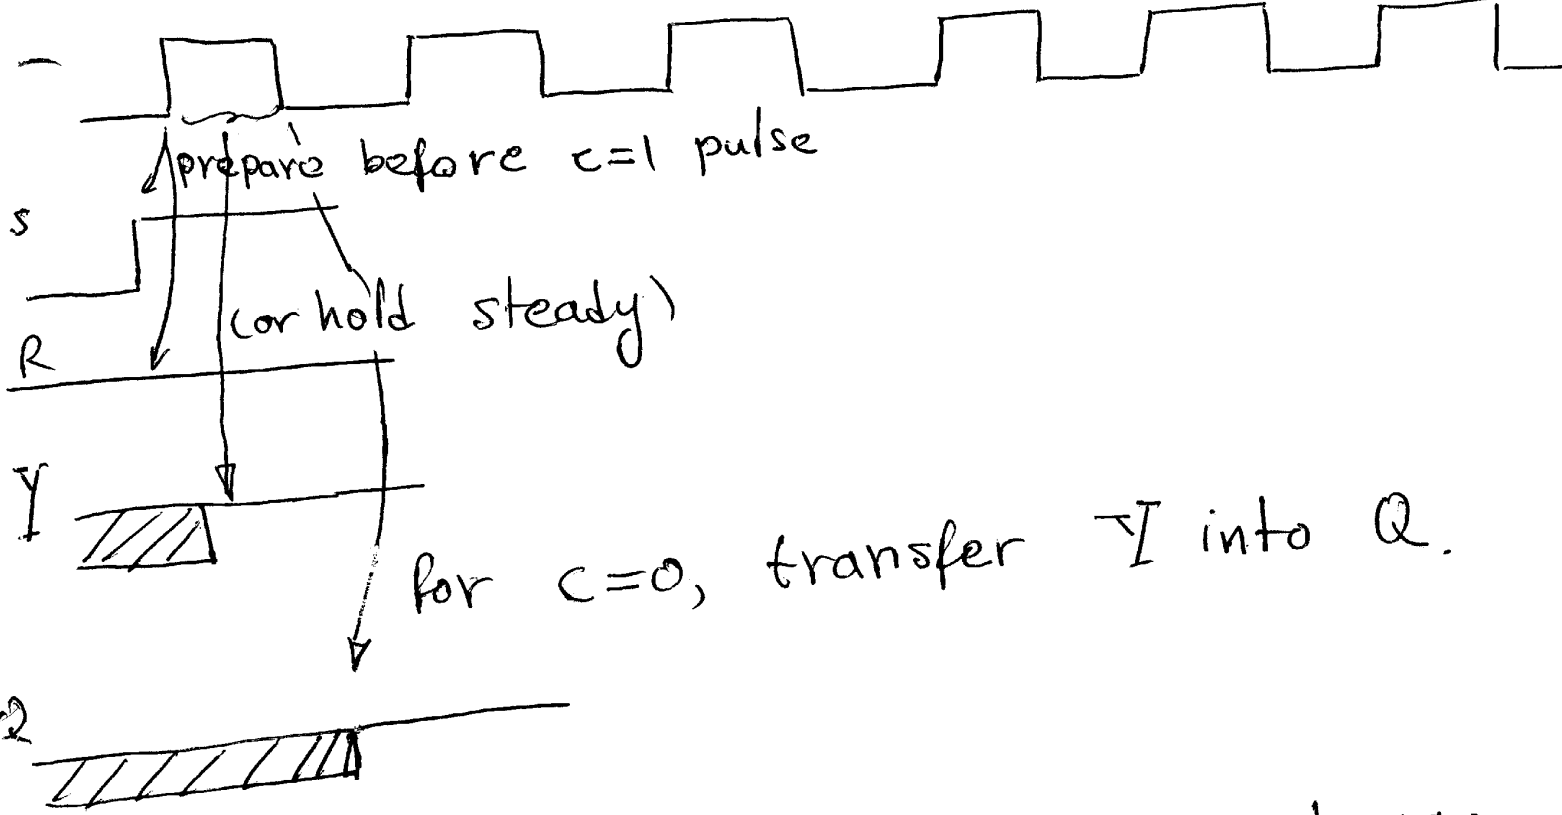 prepare before c=1 pulse
S
(or hold steady)
R
Y
for c=0, transfer Y into Q.
Q